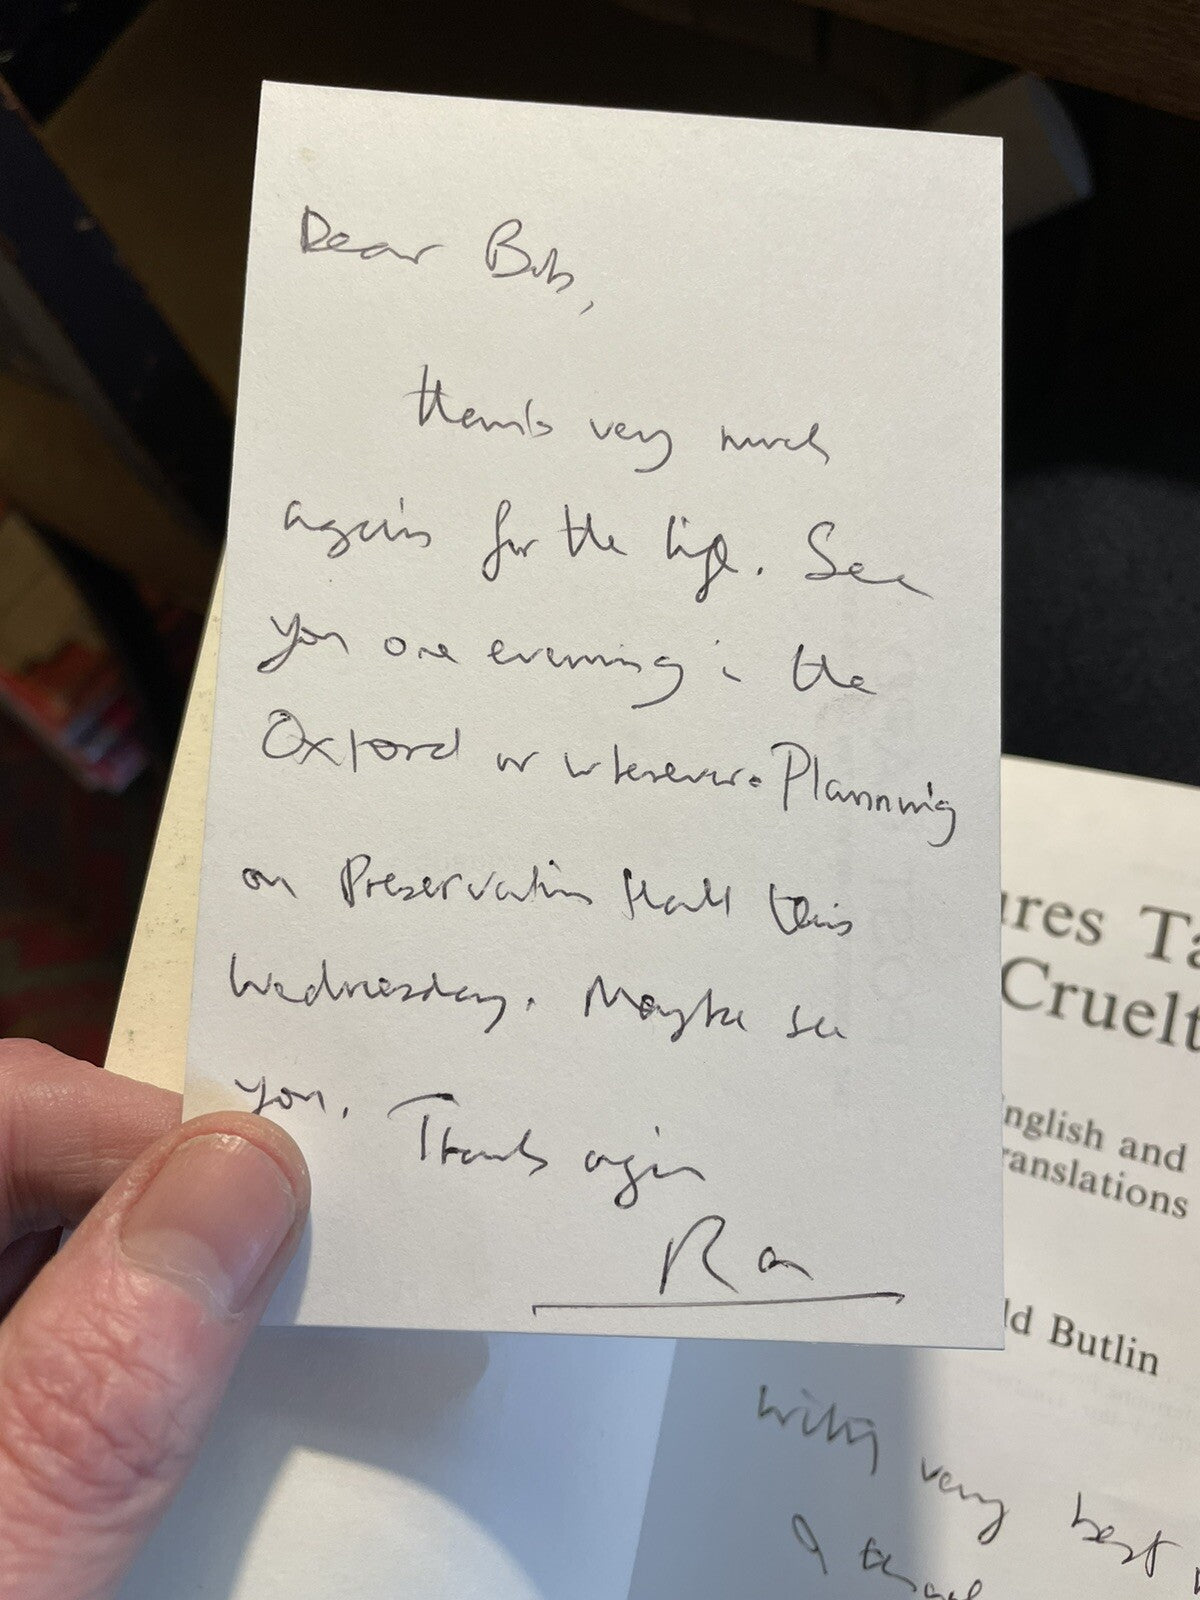 Dear Bob,
thanks very much
again for the lift. See
you one evening in the
Oxford or wherever. Planning
on Preservation Hall this
Wednesday. Maybe see
you. Thanks again
Ron
ures Ta
Cruelt
nglish and
ranslations
ld Butlin
With very best
& thanks